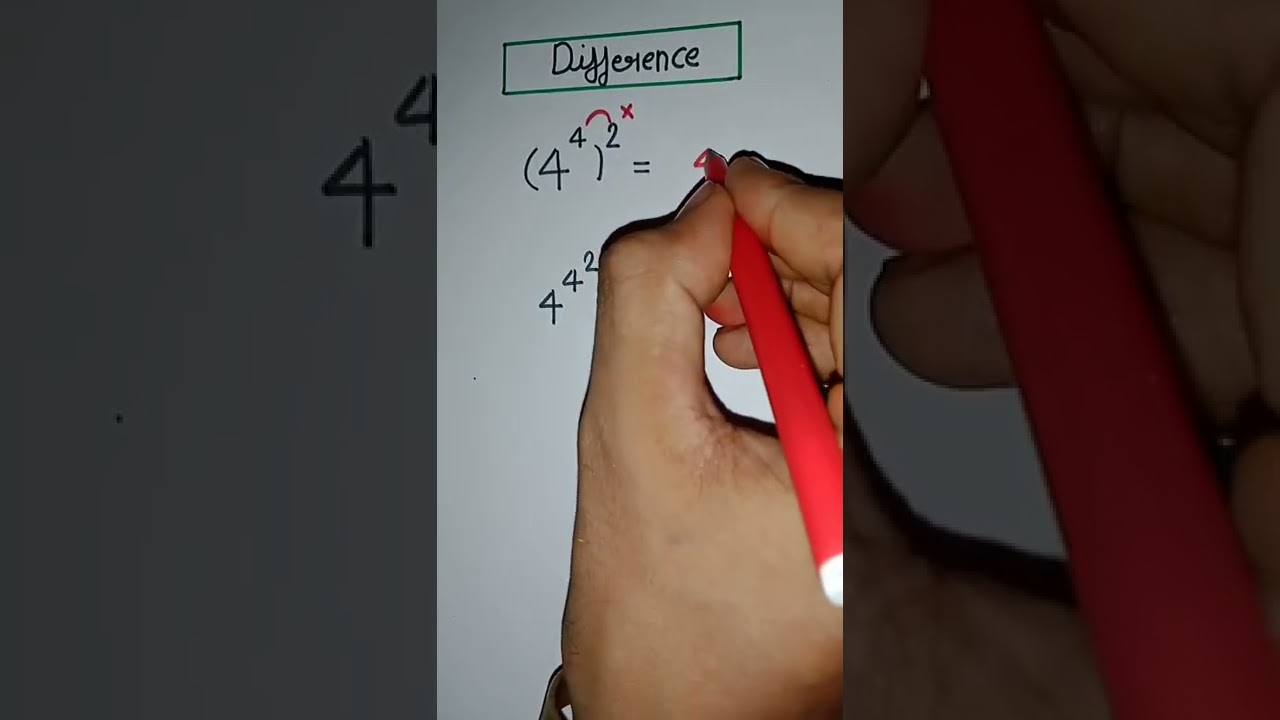 Difference
(4⁴)² = 4
4^4^2